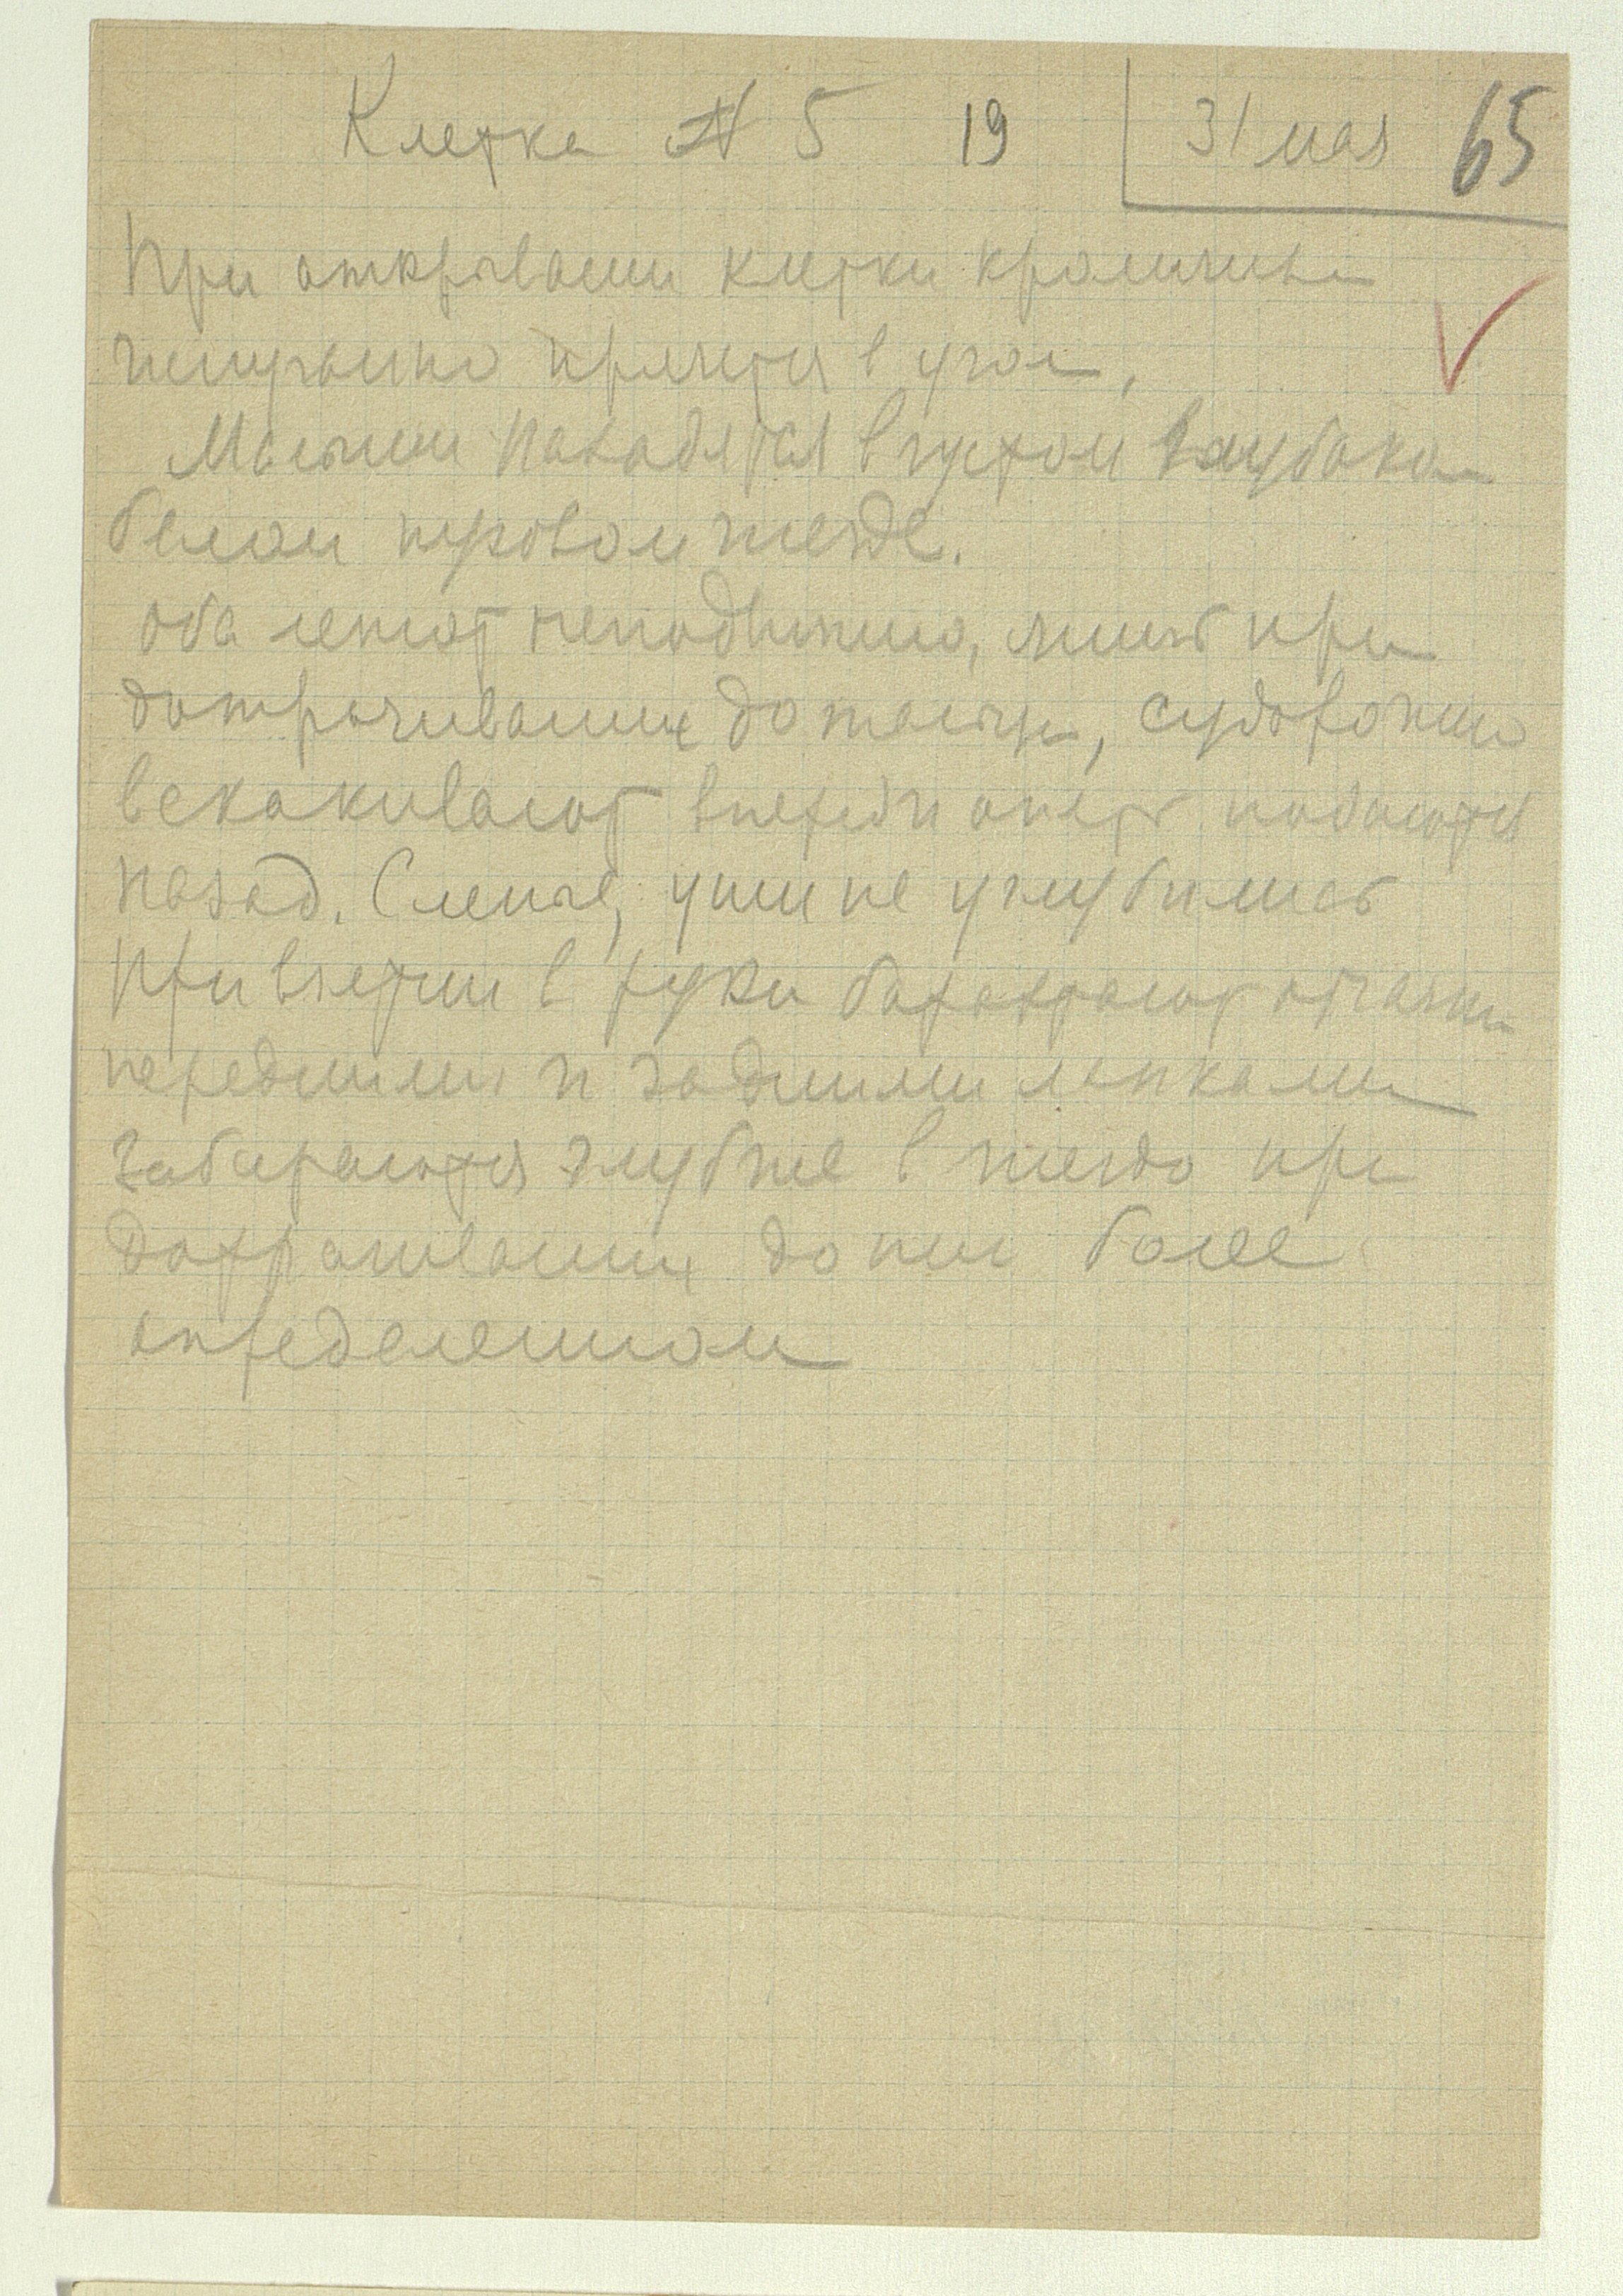 Клетка № 5 19 31 мая 65
При открывании клетки крольчиха
испуганно прячется в угол.
Малыши находятся в густом глубоком
белом пуховом гнезде.
Оба лежат неподвижно, лишь при
дотрагивании до них, судорожно
вскакивают вперед и опять подаются
назад. Слепые, уши не углубились
При взятии в руки барахтаются
передними и задними лапками
Забираются глубже в гнездо при
дотрагивании до них более
определенном